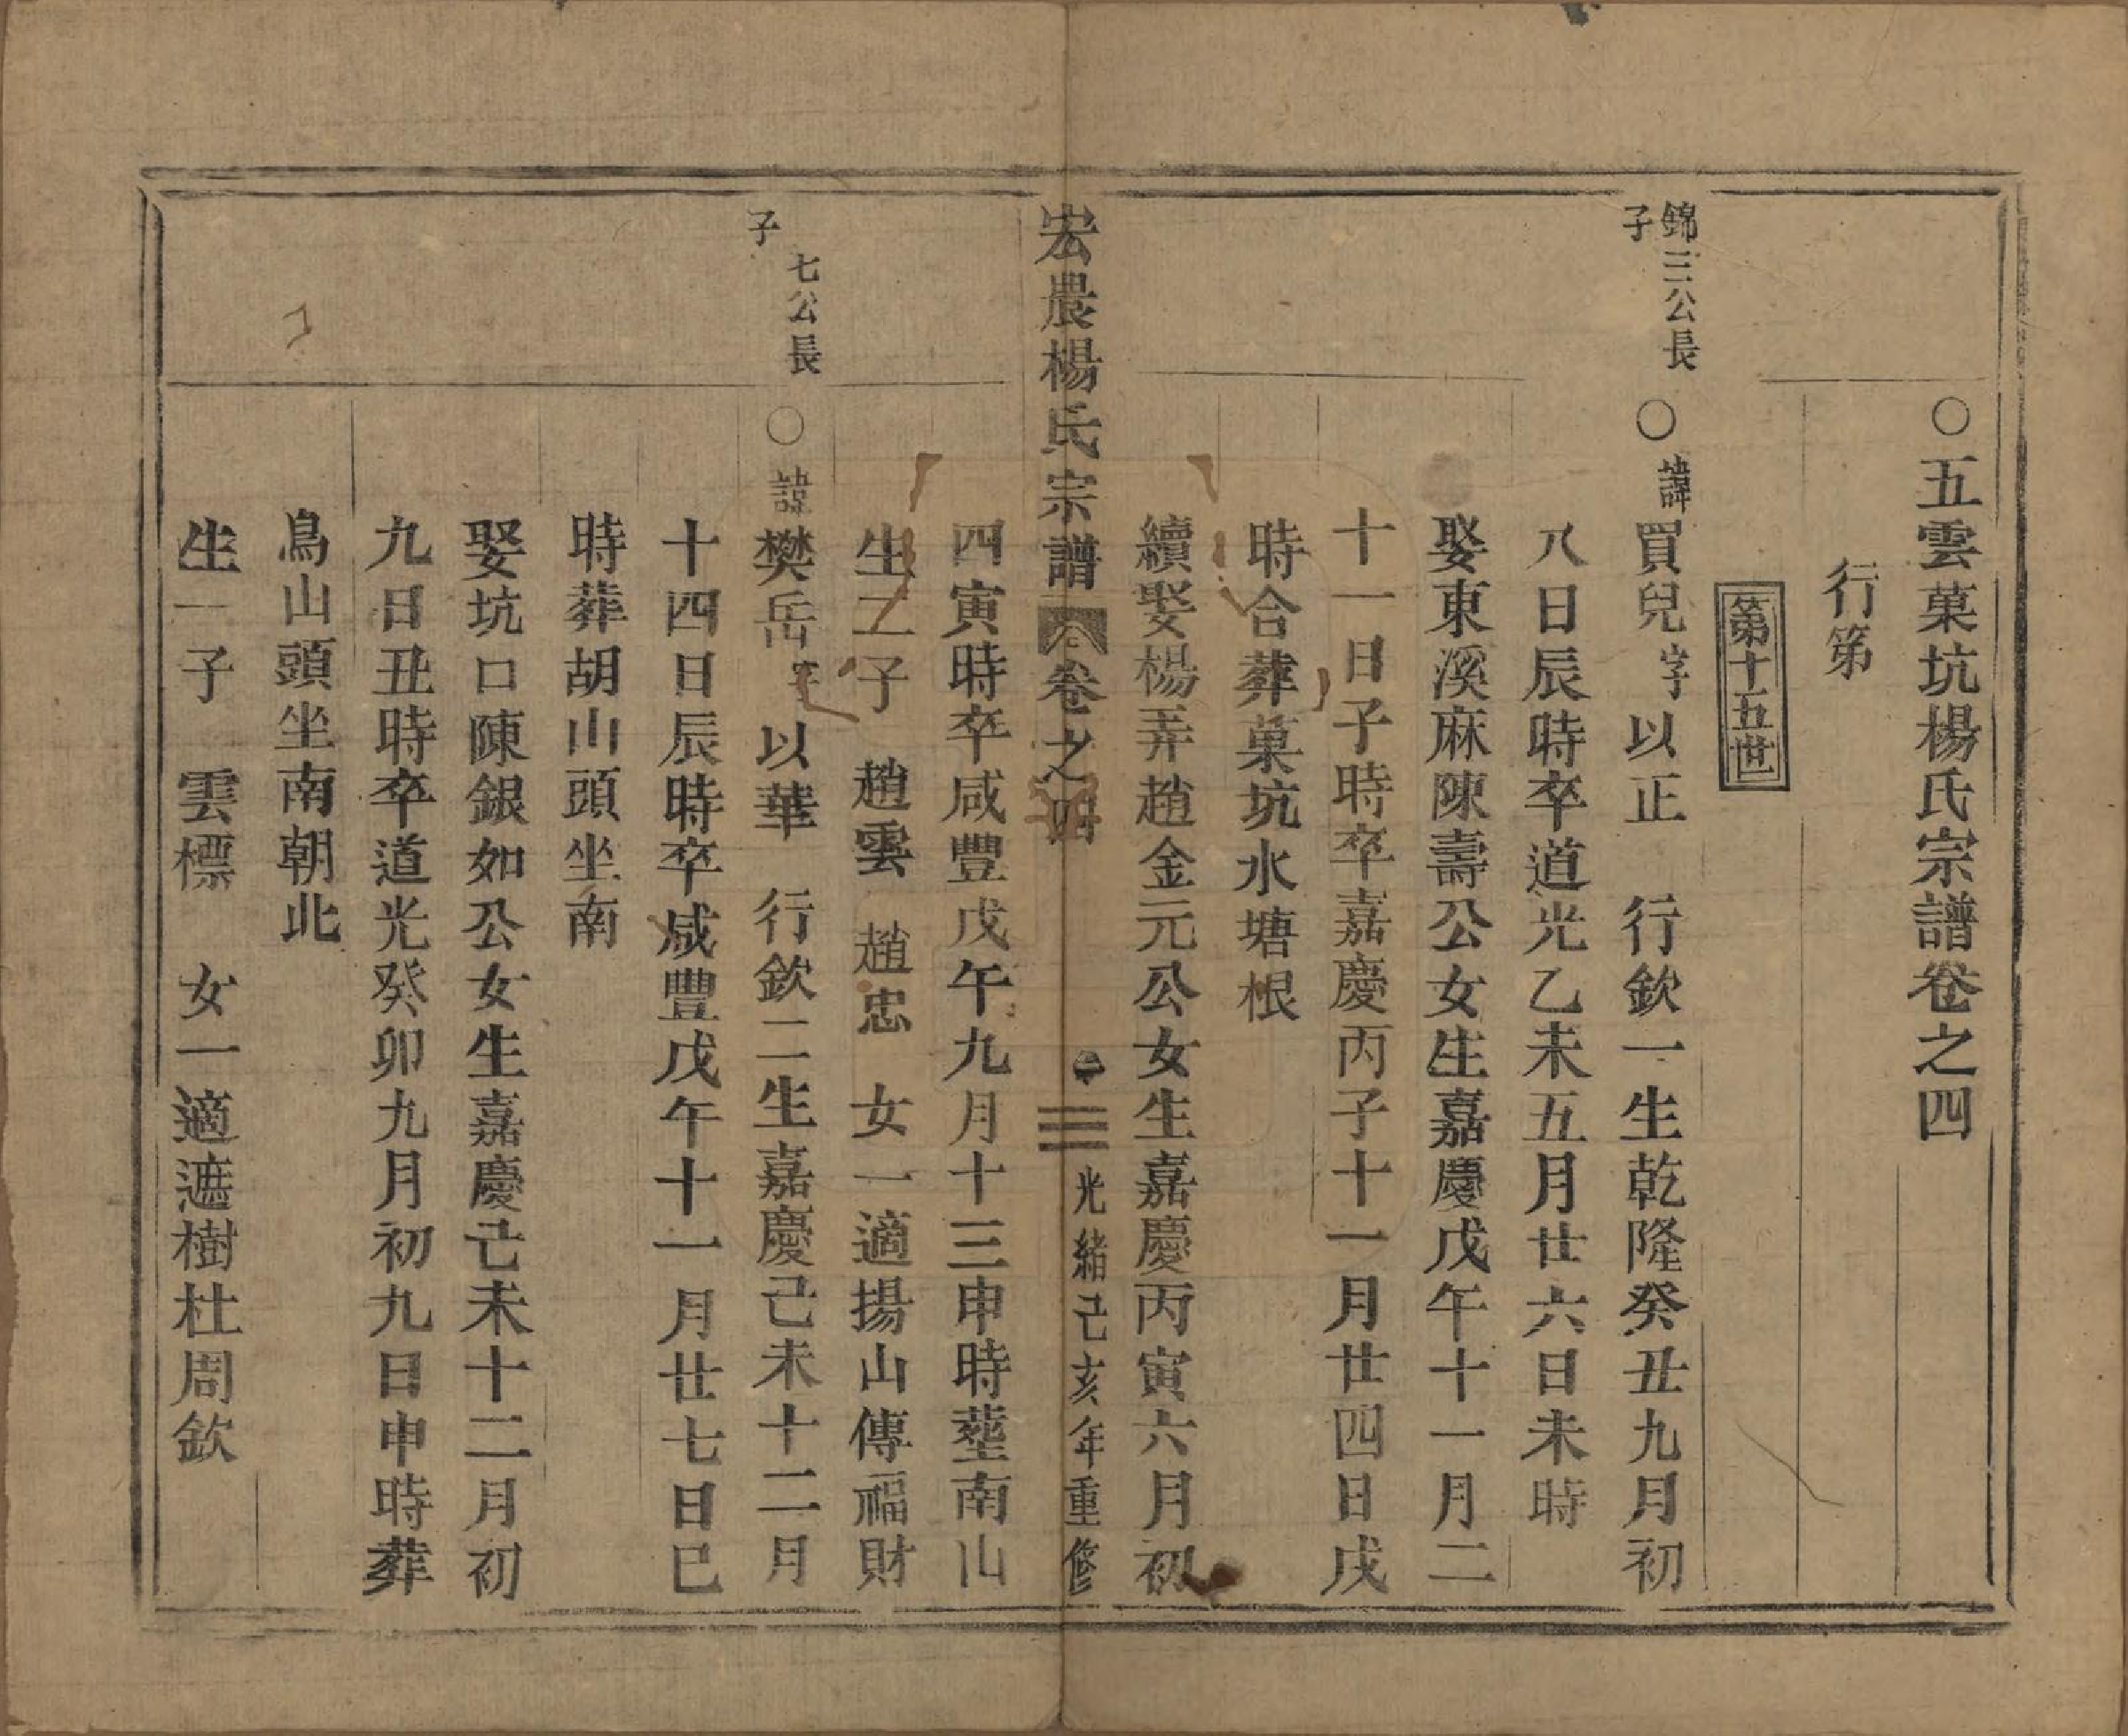 ○五雲菓坑楊氏宗譜卷之四
行第
第十五世
錦三公長
子
○諱買兒字以正　行欽一生乾隆癸丑九月初
八日辰時卒道光乙未五月廿六日未時
娶東溪麻陳壽公女生嘉慶戊午十一月二
十一日子時卒嘉慶丙子十一月廿四日戌
時合葬菓坑水塘根
續娶楊弄趙金元公女生嘉慶丙寅六月初
宏農楊氏宗譜　卷之四　光緒己亥年重修
四寅時卒咸豐戊午九月十三申時塟南山
生二子　趙雲　趙忠　女一適揚山傳福財
七公長
子
○諱樊岳字以華　行欽二生嘉慶己未十二月
十四日辰時卒咸豐戊午十一月廿七日巳
時葬胡山頭坐南
娶坑口陳銀如公女生嘉慶己未十二月初
九日丑時卒道光癸卯九月初九日申時葬
鳥山頭坐南朝北
生一子　雲標　女一適遮樹杜周欽